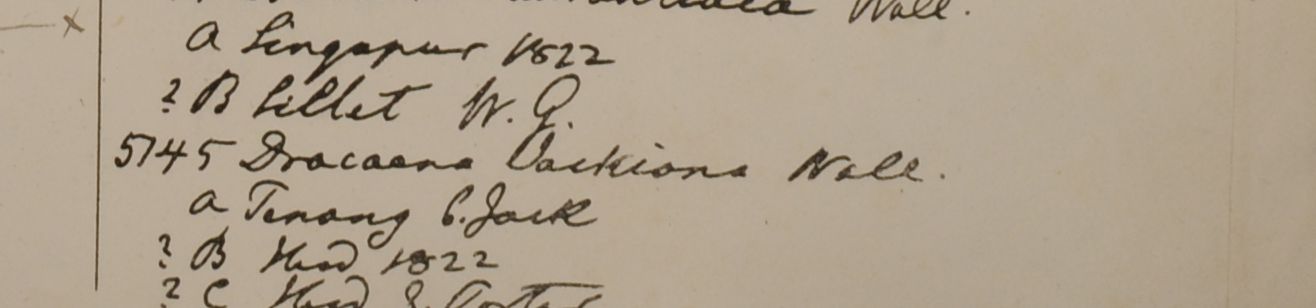 Wall.
A Singapur 1822
? B Sillet W. G.
5145 Dracaena Jackiana Wall.
A Penang C. Jack
? B Herd 1822
? C Herd